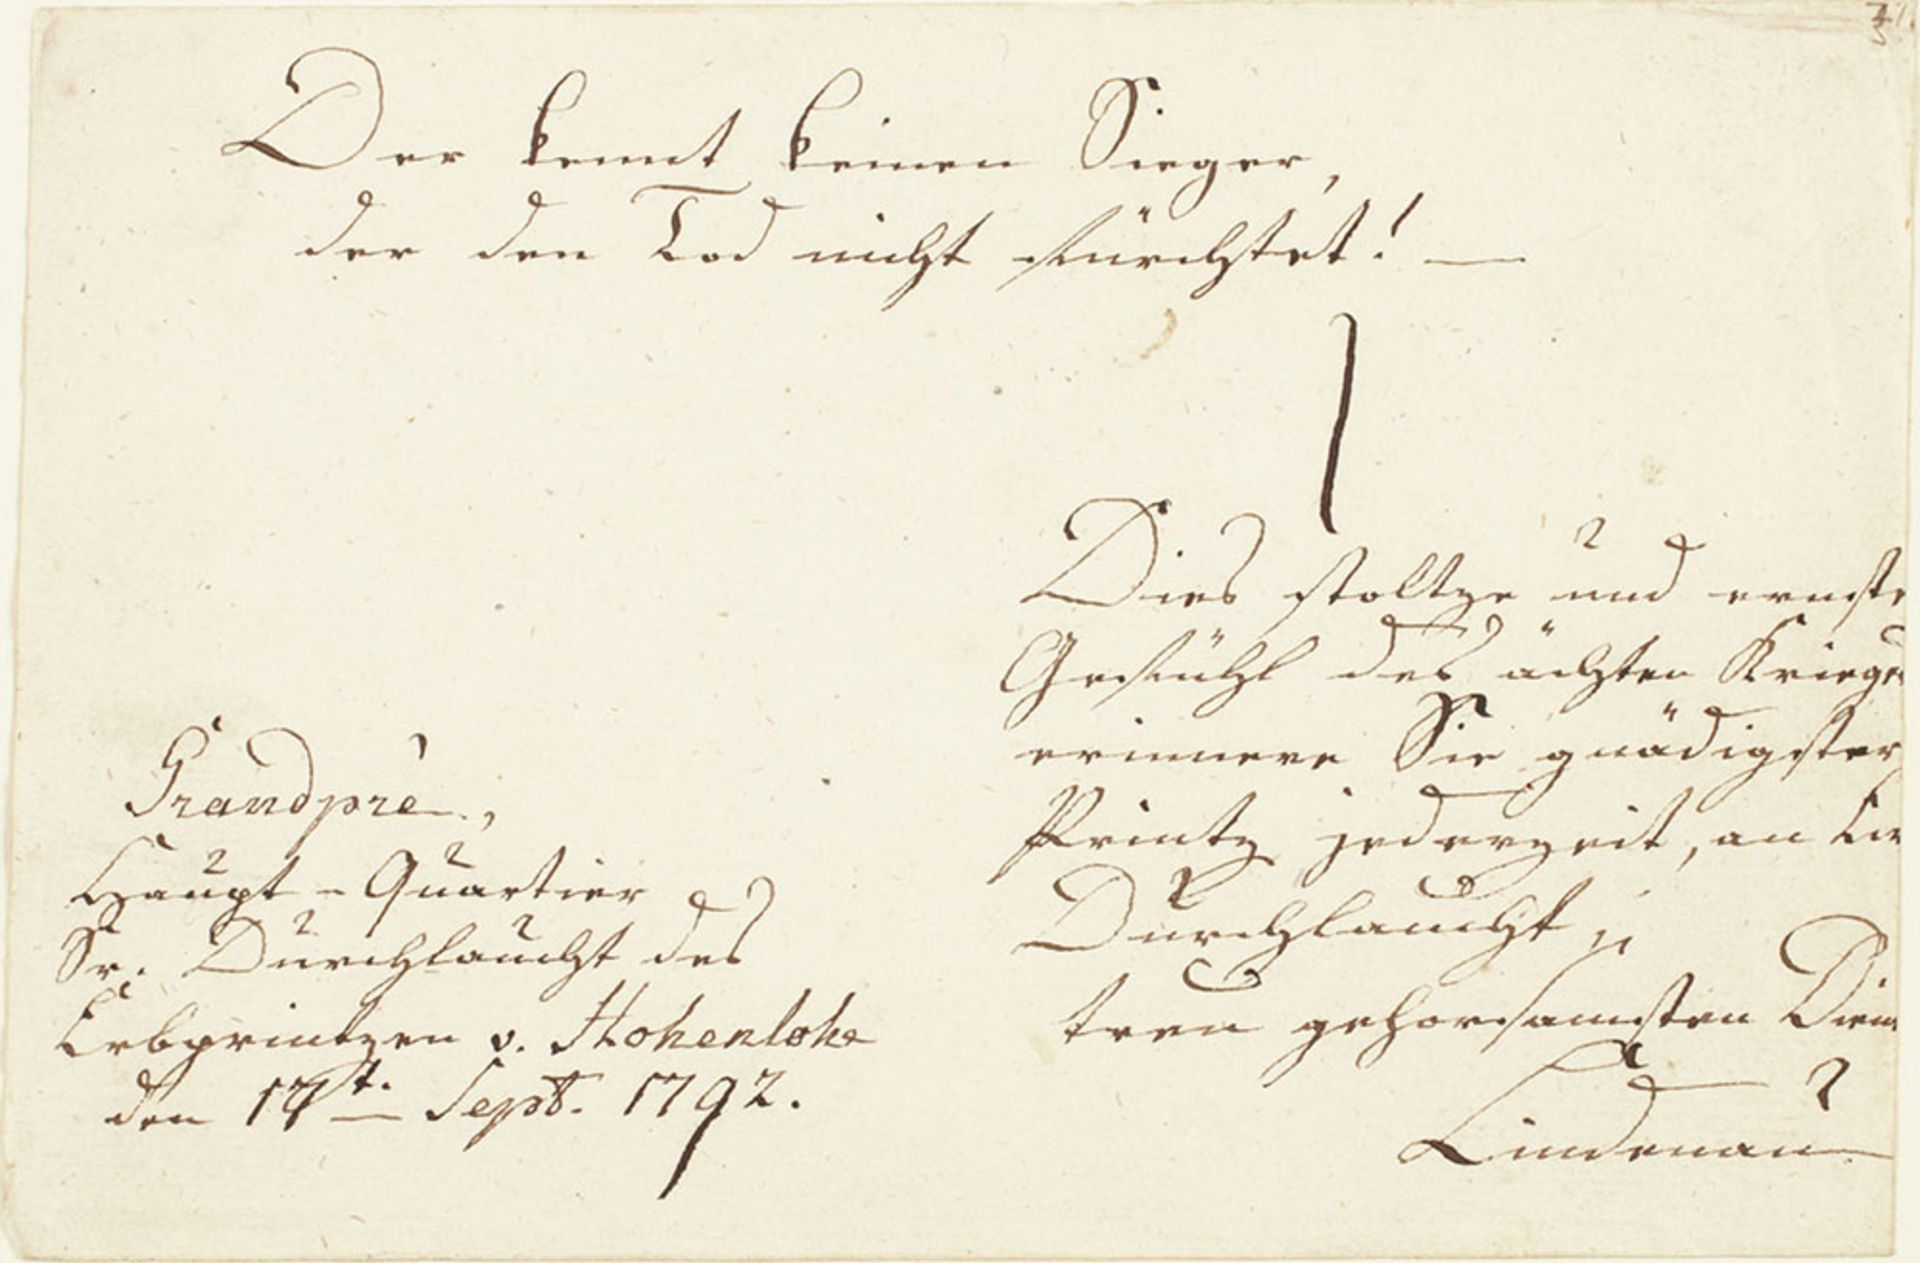 Der kennt keinen Sieger,
der den Tod nicht fürchtet! —
Dies stoltze und ernste
Gefühl des ächten Kriegers
erinnere Sie gnädigster
Printz jederzeit, an Ew
Durchlaucht
treu gehorsamsten Diener
Lindenau
Grandprè,
Haupt-Quartier
Sr. Durchlaucht des
Erbprintzen v. Hohenlohe
den 17t. Sept. 1792.